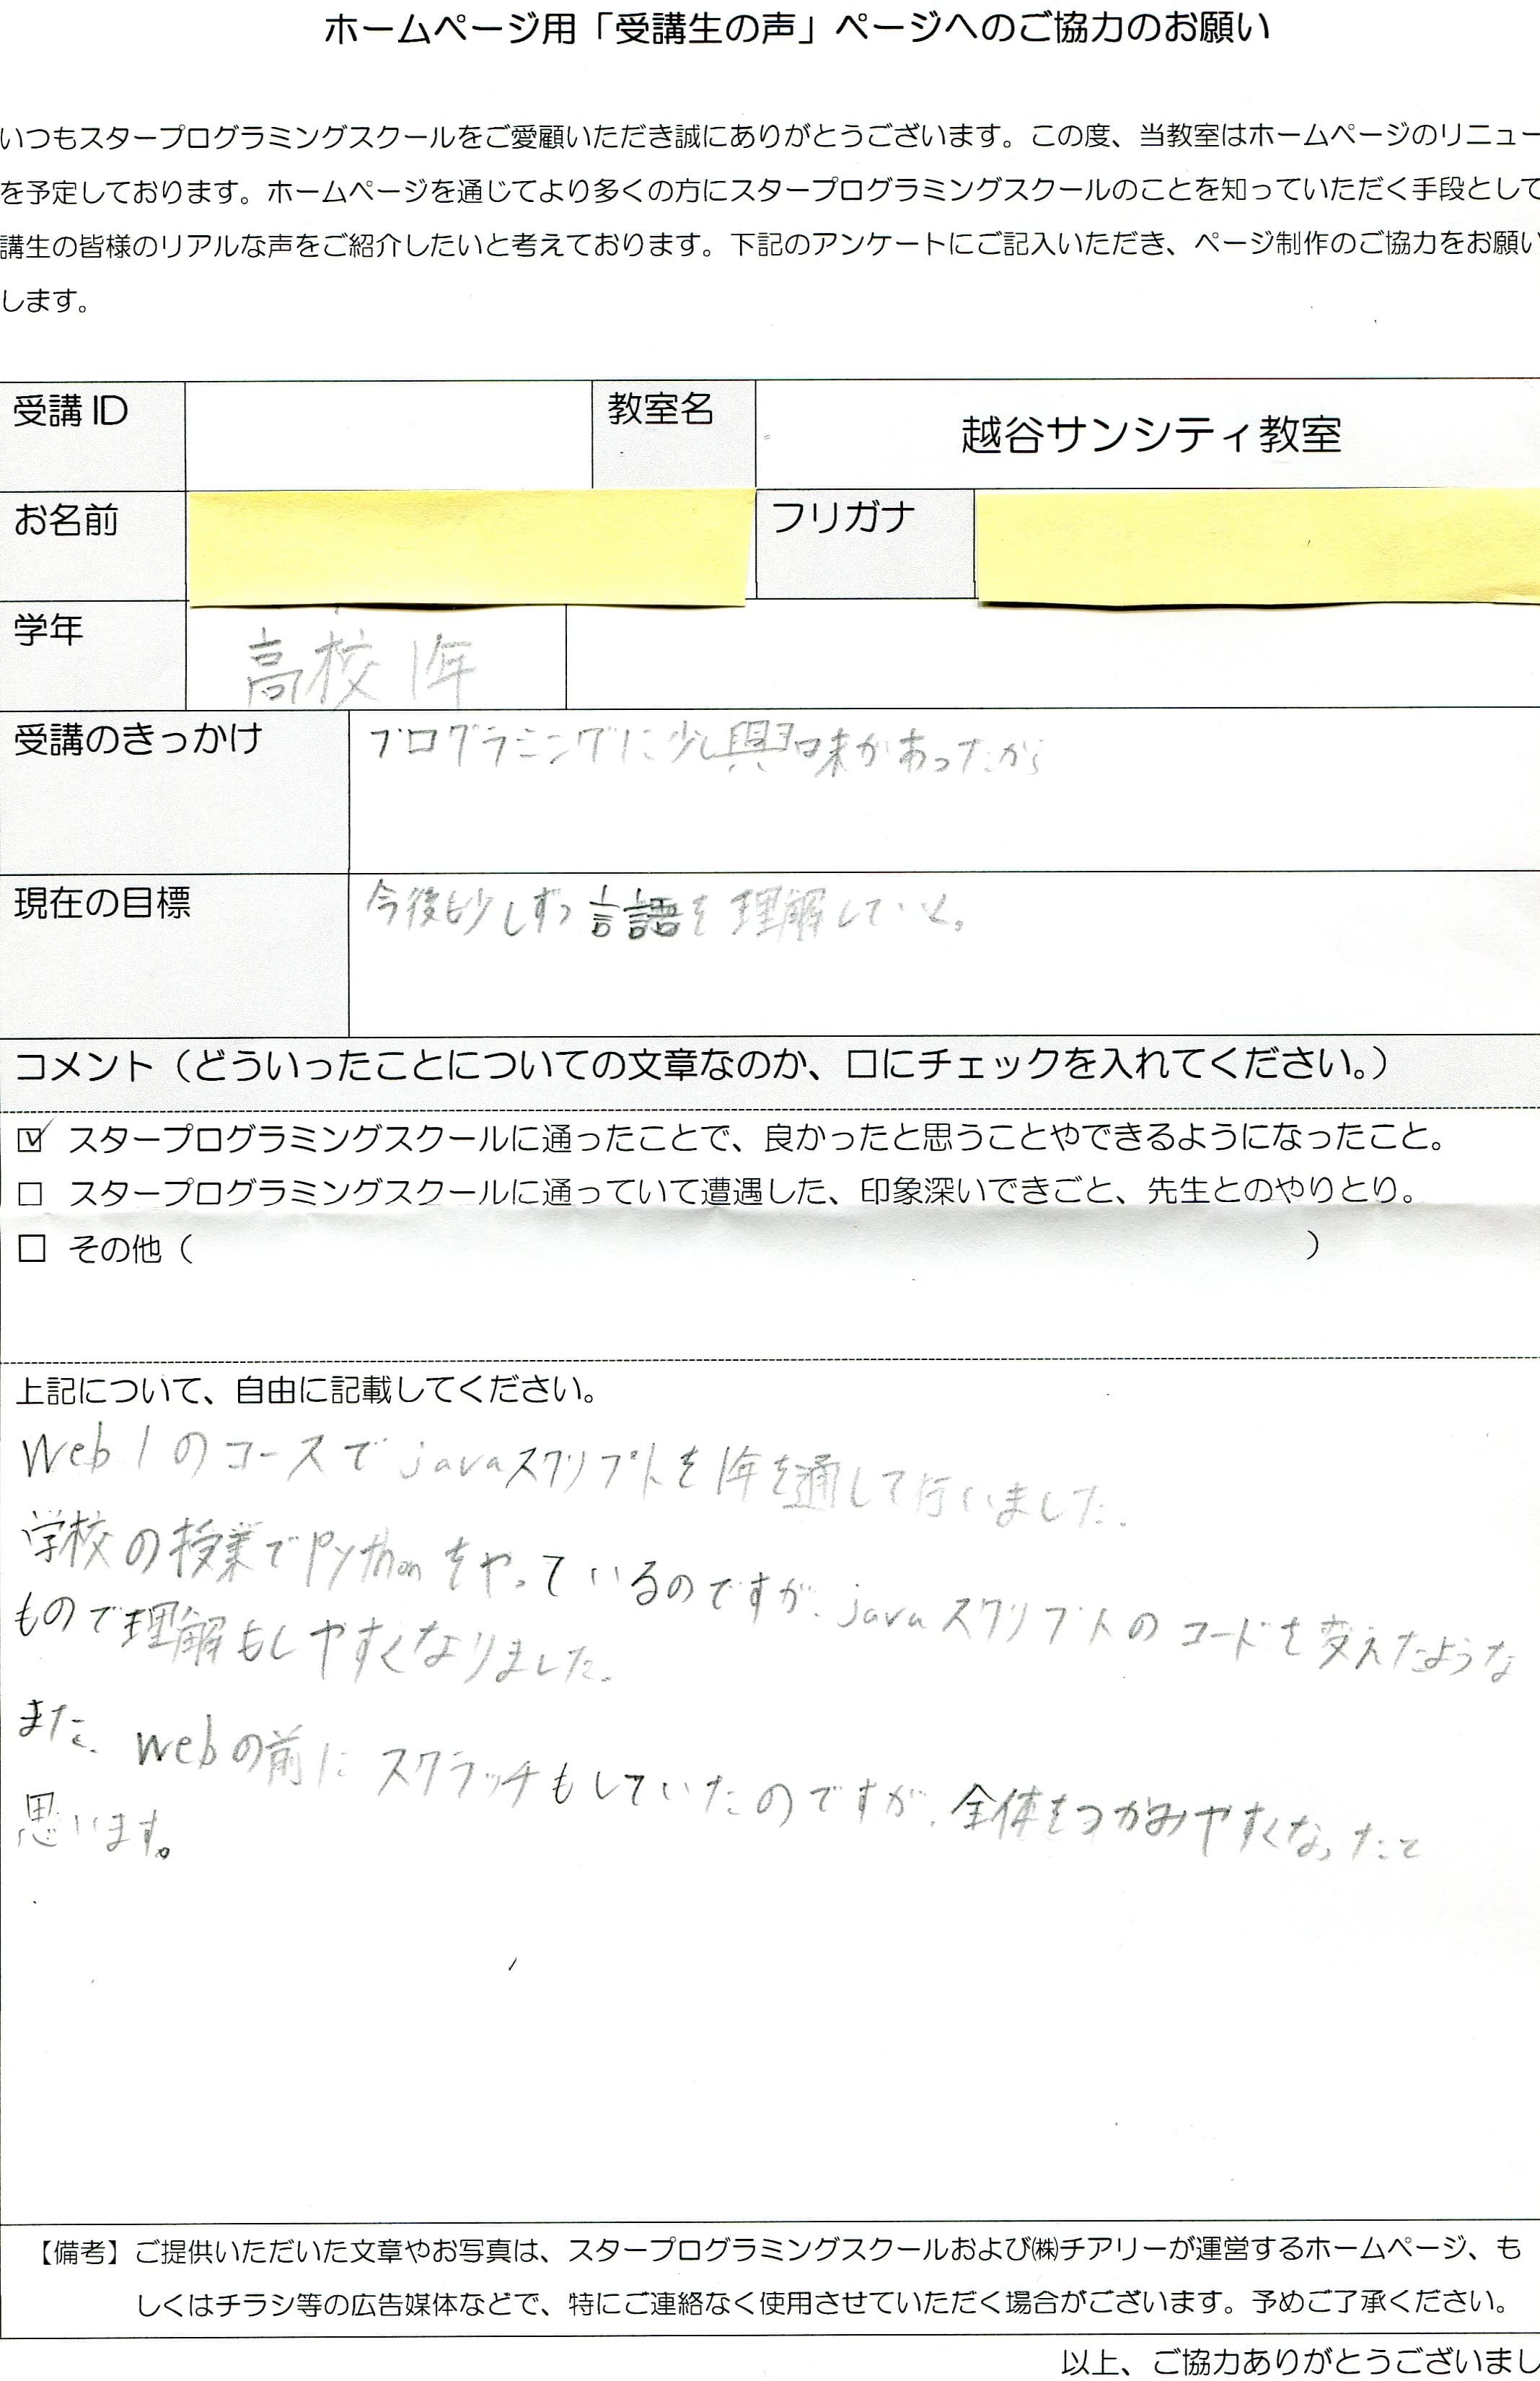 ホームページ用「受講生の声」ページへのご協力のお願い
いつもスタープログラミングスクールをご愛顧いただき誠にありがとうございます。この度、当教室はホームページのリニュー
を予定しております。ホームページを通じてより多くの方にスタープログラミングスクールのことを知っていただく手段として
講生の皆様のリアルな声をご紹介したいと考えております。下記のアンケートにご記入いただき、ページ制作のご協力をお願い
します。
受講ID 教室名 越谷サンシティ教室
お名前 フリガナ
学年 高校1年
受講のきっかけ プログラミングに少し興味があったから
現在の目標 今後も少しずつ言語を理解していく。
コメント（どういったことについての文章なのか、口にチェックを入れてください。）
☑ スタープログラミングスクールに通ったことで、良かったと思うことやできるようになったこと。
□ スタープログラミングスクールに通っていて遭遇した、印象深いできごと、先生とのやりとり。
□ その他（ ）
上記について、自由に記載してください。
Web1のコースでjavaスクリプトを1年を通して行いました。
学校の授業でpythonをやっているのですが、javaスクリプトのコードを変えたような
もので理解もしやすくなりました。
また、webの前にスクラッチもしていたのですが、全体をつかみやすくなったと
思います。
【備考】ご提供いただいた文章やお写真は、スタープログラミングスクールおよび㈱チアリーが運営するホームページ、も
しくはチラシ等の広告媒体などで、特にご連絡なく使用させていただく場合がございます。予めご了承ください。
以上、ご協力ありがとうございまし